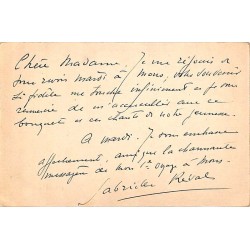 Chère Madame, je me réjouis de
vous revoir mardi à Mons, votre souvenir
si fidèle me touche infiniment et je vous
remercie de m'accueillir avec ce
bouquet et ces chants de votre jeunesse.
A mardi. Je vous embrasse
affectueusement, ainsi que la charmante
messagère de mon 1er voyage à Mons.
Gabrielle Réval